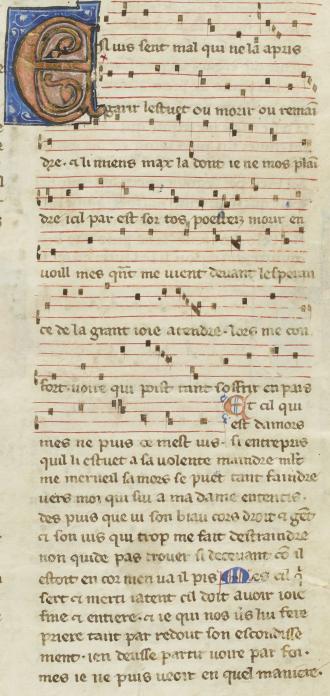 Cil uis sent mal qui ne la apris
garir lestuet ou morir ou remai
dre. & li miens max la dont ie ne mos plai
dre icil par est sor tos poesteis morir en
uoill mes qnt me uient deuant lesperan
ce de la grant ioie atendre. lors me con
fort. uoire qui poist tant soffrir en pais
Et cil qui
est damors
mes ne puis ce mest uis. si entrepris
quil li estuet a sa uolente maindre mlt
me merueil samors se puet tant faindre
uers moi qui sui a ma dame ententis.
des puis que ui son biau cors droit & gent
& son uis qui trop me fait destraindre
non quide pas trouer si deceuant com il
estoit en cor nien ua il pis Mes cil q
sert & merci atent cil doit auoir ioie
fine & entiere. & ie qui nos uers lui feire
priere tant par redout son escondisse
ment. ien deusse partir uoire par foi.
mes ie ne puis ueoir en quel maniere.